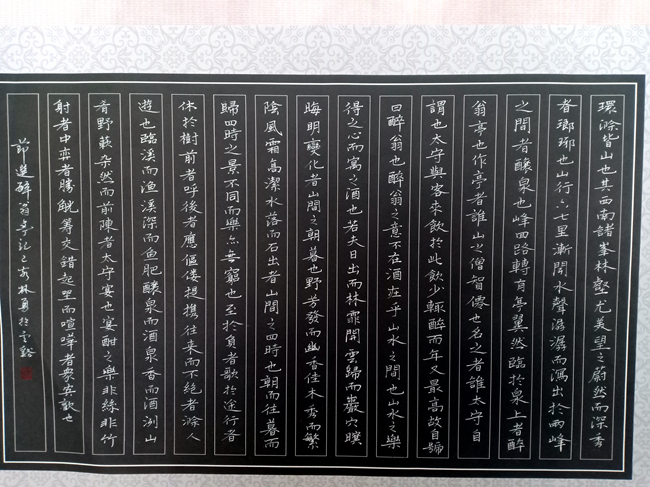 環滁皆山也其西南諸峯林壑尤美望之蔚然而深秀
者瑯琊也山行六七里漸聞水聲潺潺而瀉出於兩峰
之間者釀泉也峰回路轉有亭翼然臨於泉上者醉
翁亭也作亭者誰山之僧智僊也名之者誰太守自
謂也太守與客來飲於此飲少輒醉而年又最高故自號
曰醉翁也醉翁之意不在酒在乎山水之間也山水之樂
得之心而寓之酒也若夫日出而林霏開雲歸而巖穴暝
晦明變化者山間之朝暮也野芳發而幽香佳木秀而繁
陰風霜高潔水落而石出者山間之四時也朝而往暮而
歸四時之景不同而樂亦無窮也至於負者歌於途行者
休於樹前者呼後者應傴僂提携往來而不絕者滁人
遊也臨溪而漁溪深而魚肥釀泉而酒泉香而酒洌山
肴野蔌杂然而前陳者太守宴也宴酣之樂非絲非竹
射者中弈者勝觥籌交錯起坐而喧嘩者衆賓歡也
節選醉翁亭記林勇於雲谿